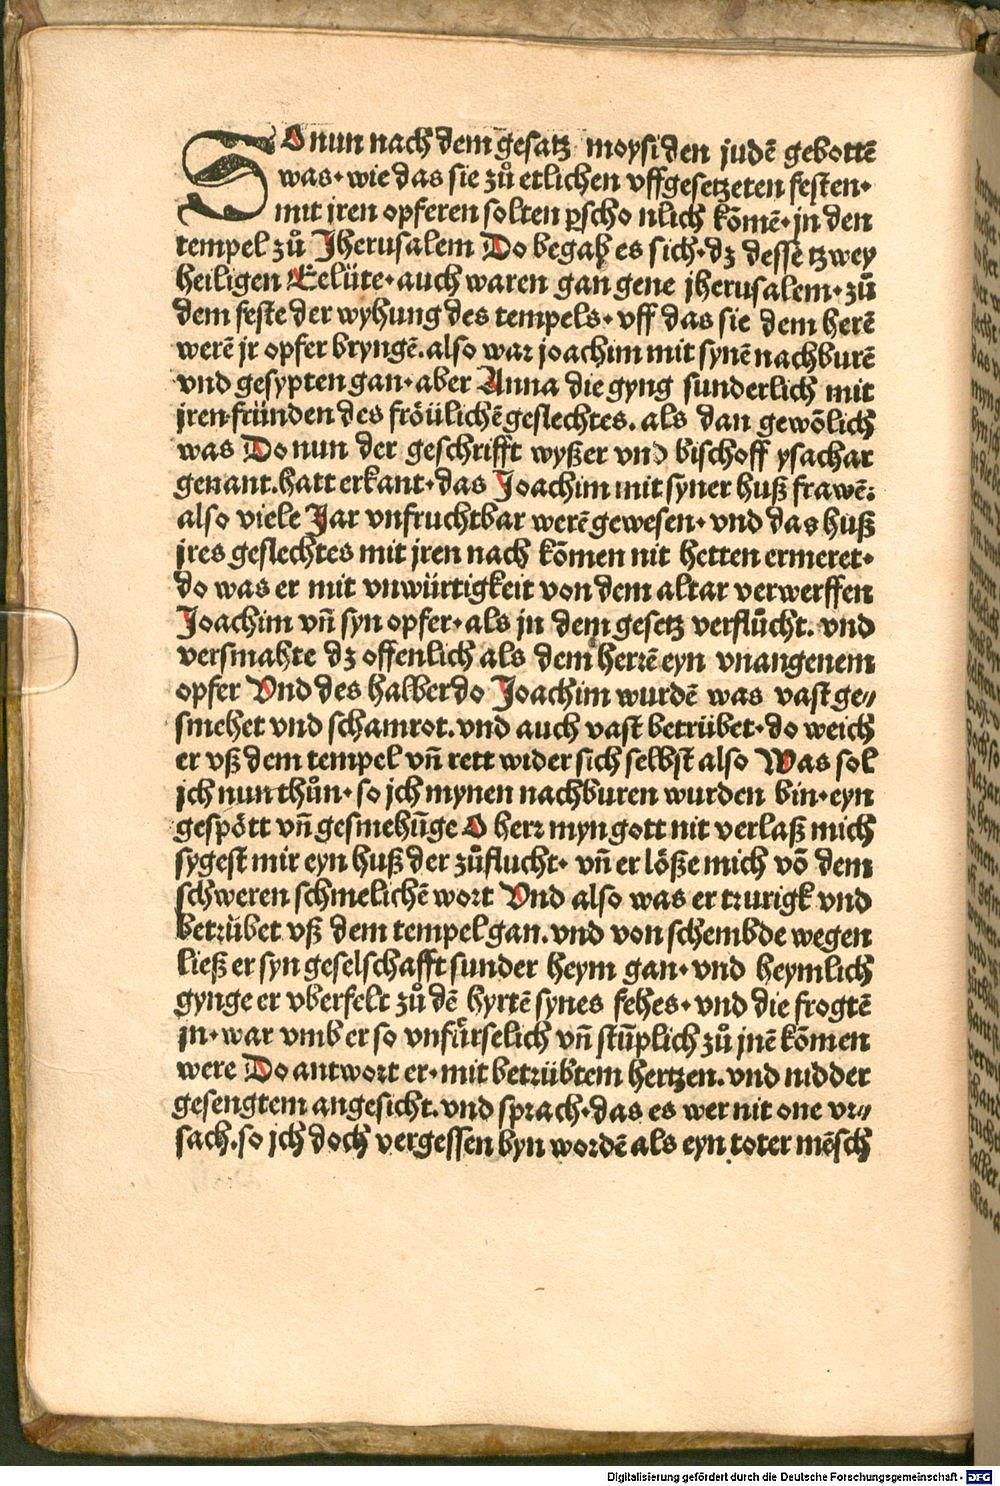 SO nun nach dem gesatz moysi den judē gebottē
was · wie das sie zů etlichen vffgesetzeten festen ·
mit jren opferen solten ꝑscho nlich kōmē · jn den
tempel zů Jherusalem Do begab es sich · dz dessē tzwey
heiligen Eelüte · auch waren gan gene jherusalem · zů
dem feste der wyhung des tempels · vff das sie dem herē
werē jr opfer bryngē. also waꝛ joachim mit synē nachburē
vnd gesypten gan · aber Anna die gyng sunderlich mit
jren fründen des fröülichē geslechtes. als dan gewōlich
was Do nun der geschrifft wyßer vnd bischoff ysachar
genant. hatt erkant · das Joachim mit syner huß frawē:
also viele Jar vnfruchtbar werē gewesen · vnd das huß
jres geslechtes mit jren nach kōmen nit hetten ermeret ·
do was er mit vnwürtigkeit von dem altar verwerffen
Joachim vñ syn opfer · als jn dem gesetz verflůcht. vnd
versmahte dz offenlich als dem herrē eyn vnangenem
opfer Vnd des halber do Joachim wurdē was vast ge⸗
smehet vnd schamrot. vnd auch vast betrübet · do weich
er vß dem tempel vñ rett wider sich selbst also Was sol
jch nun thůn · so jch mynen nachburen wurden bin · eyn
gespött vñ gesmehūge O herꝛ myn gott nit verlaß mich
sygest mir eyn huß der zůflucht · vñ er löße mich vō dem
schweren schmelichē woꝛt Vnd also was er tꝛurigk vnd
betꝛübet vß dem tempel gan. vnd von schembde wegen
ließ er syn geselschafft sunder heym gan · vnd heymlich
gynge er vberfelt zů dē hyrtē synes fehes · vnd die frogtē
jn · war vmb er so vnfürselich vñ stūplich zů jnē kōmen
were Do antwoꝛt er · mit betꝛübtem hertzen. vnd nidder
gesengtem angesicht. vnd sprach · das es wer nit one vꝛ⸗
sach. so jch doch vergessen byn woꝛdē als eyn toter mēsch
Digitalisierung gefördert durch die Deutsche Forschungsgemeinschaft - DFG